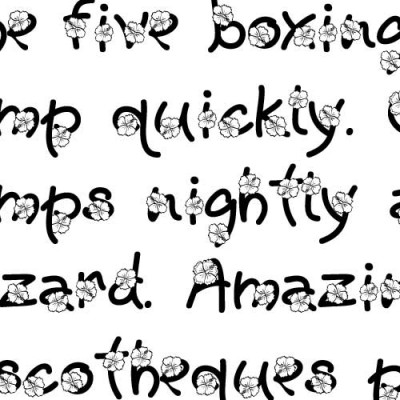 e five boxing
mp quickly.
mps nightly a
zard. Amazin
scotheques p